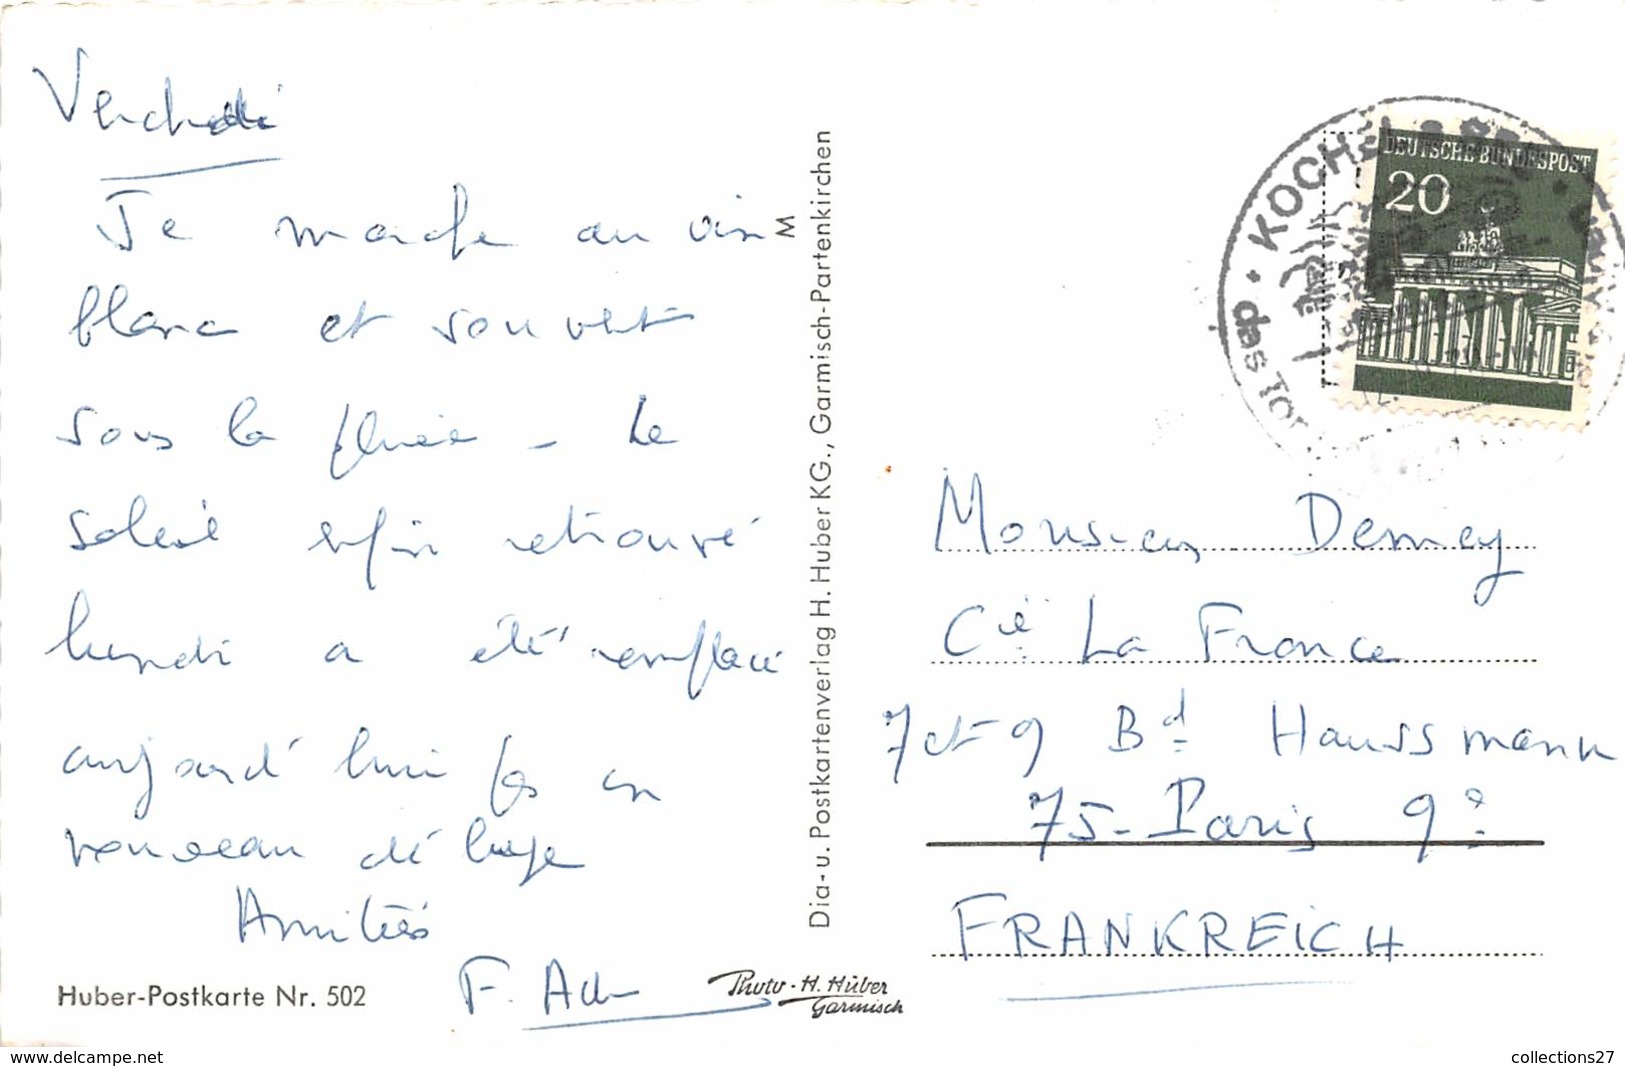 Vendredi
Je marche au vin
blanc et souvent
sous la pluie - Le
soleil enfin retrouvé
lundi a été remplacé
aujourd'hui par un
nouveau déluge
Amitiés
F.
Huber-Postkarte Nr. 502
Photo-H. Huber
Garmisch
M
Dia- u. Postkartenverlag H. Huber KG., Garmisch-Partenkirchen
DEUTSCHE BUNDESPOST
20
KOCHEL
das Tor
Monsieur Demey
Cie La France
7 et 9 Bd Haussmann
75-Paris 9e
FRANKREICH
www.delcampe.net
collections27